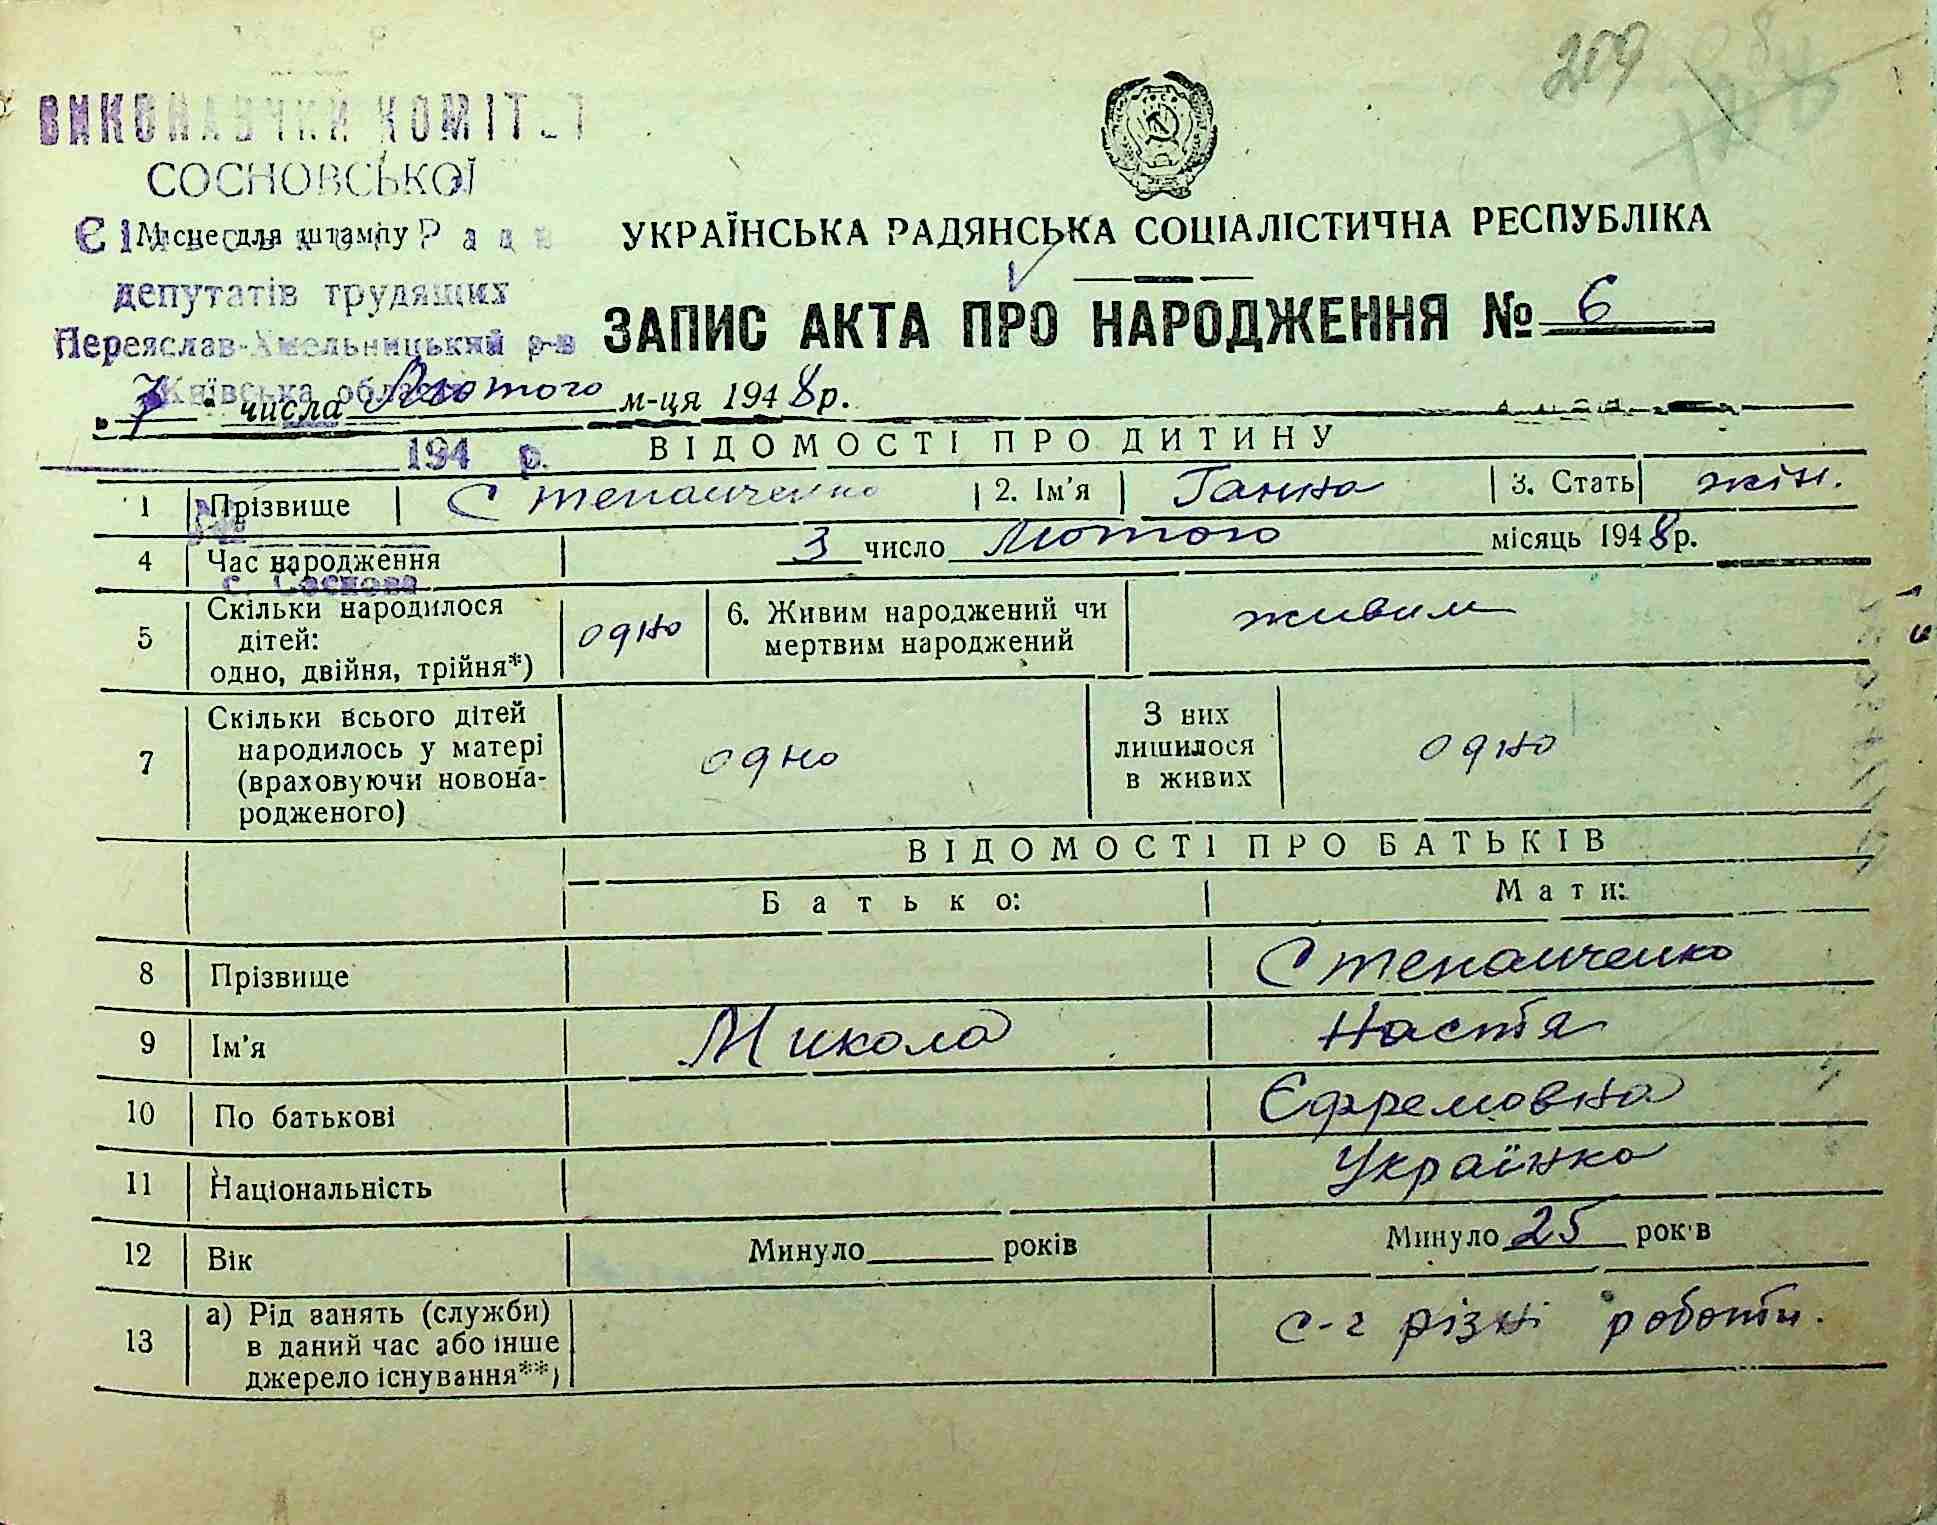 209
ВИКОНАВЧИЙ КОМІТЕТ
СОСНОВСЬКОЇ
Місце для штампу Ради
депутатів трудящих
Переяслав-Хмельницький р-н
Київська область
УКРАЇНСЬКА РАДЯНСЬКА СОЦІАЛІСТИЧНА РЕСПУБЛІКА
ЗАПИС АКТА ПРО НАРОДЖЕННЯ № 6
„7“ числа Лютого м-ця 1948 р.
194 р.
ВІДОМОСТІ ПРО ДИТИНУ
1 Прізвище Степанченко 2. Ім'я Ганна 3. Стать жін.
4 Час народження 3 число Лютого місяць 1948 р.
с. Соснова
5 Скільки народилося дітей: одно, двійня, трійня*) одно 6. Живим народжений чи мертвим народжений живим
7 Скільки всього дітей народилось у матері (враховуючи новонародженого) одно З них лишилося в живих одно
ВІДОМОСТІ ПРО БАТЬКІВ
Батько: Мати:
8 Прізвище Степанченко
9 Ім'я Микола Настя
10 По батькові Єфремовна
11 Національність Українка
12 Вік Минуло років Минуло 25 років
13 а) Рід занять (служби) в даний час або інше джерело існування**) с-г різні роботи.